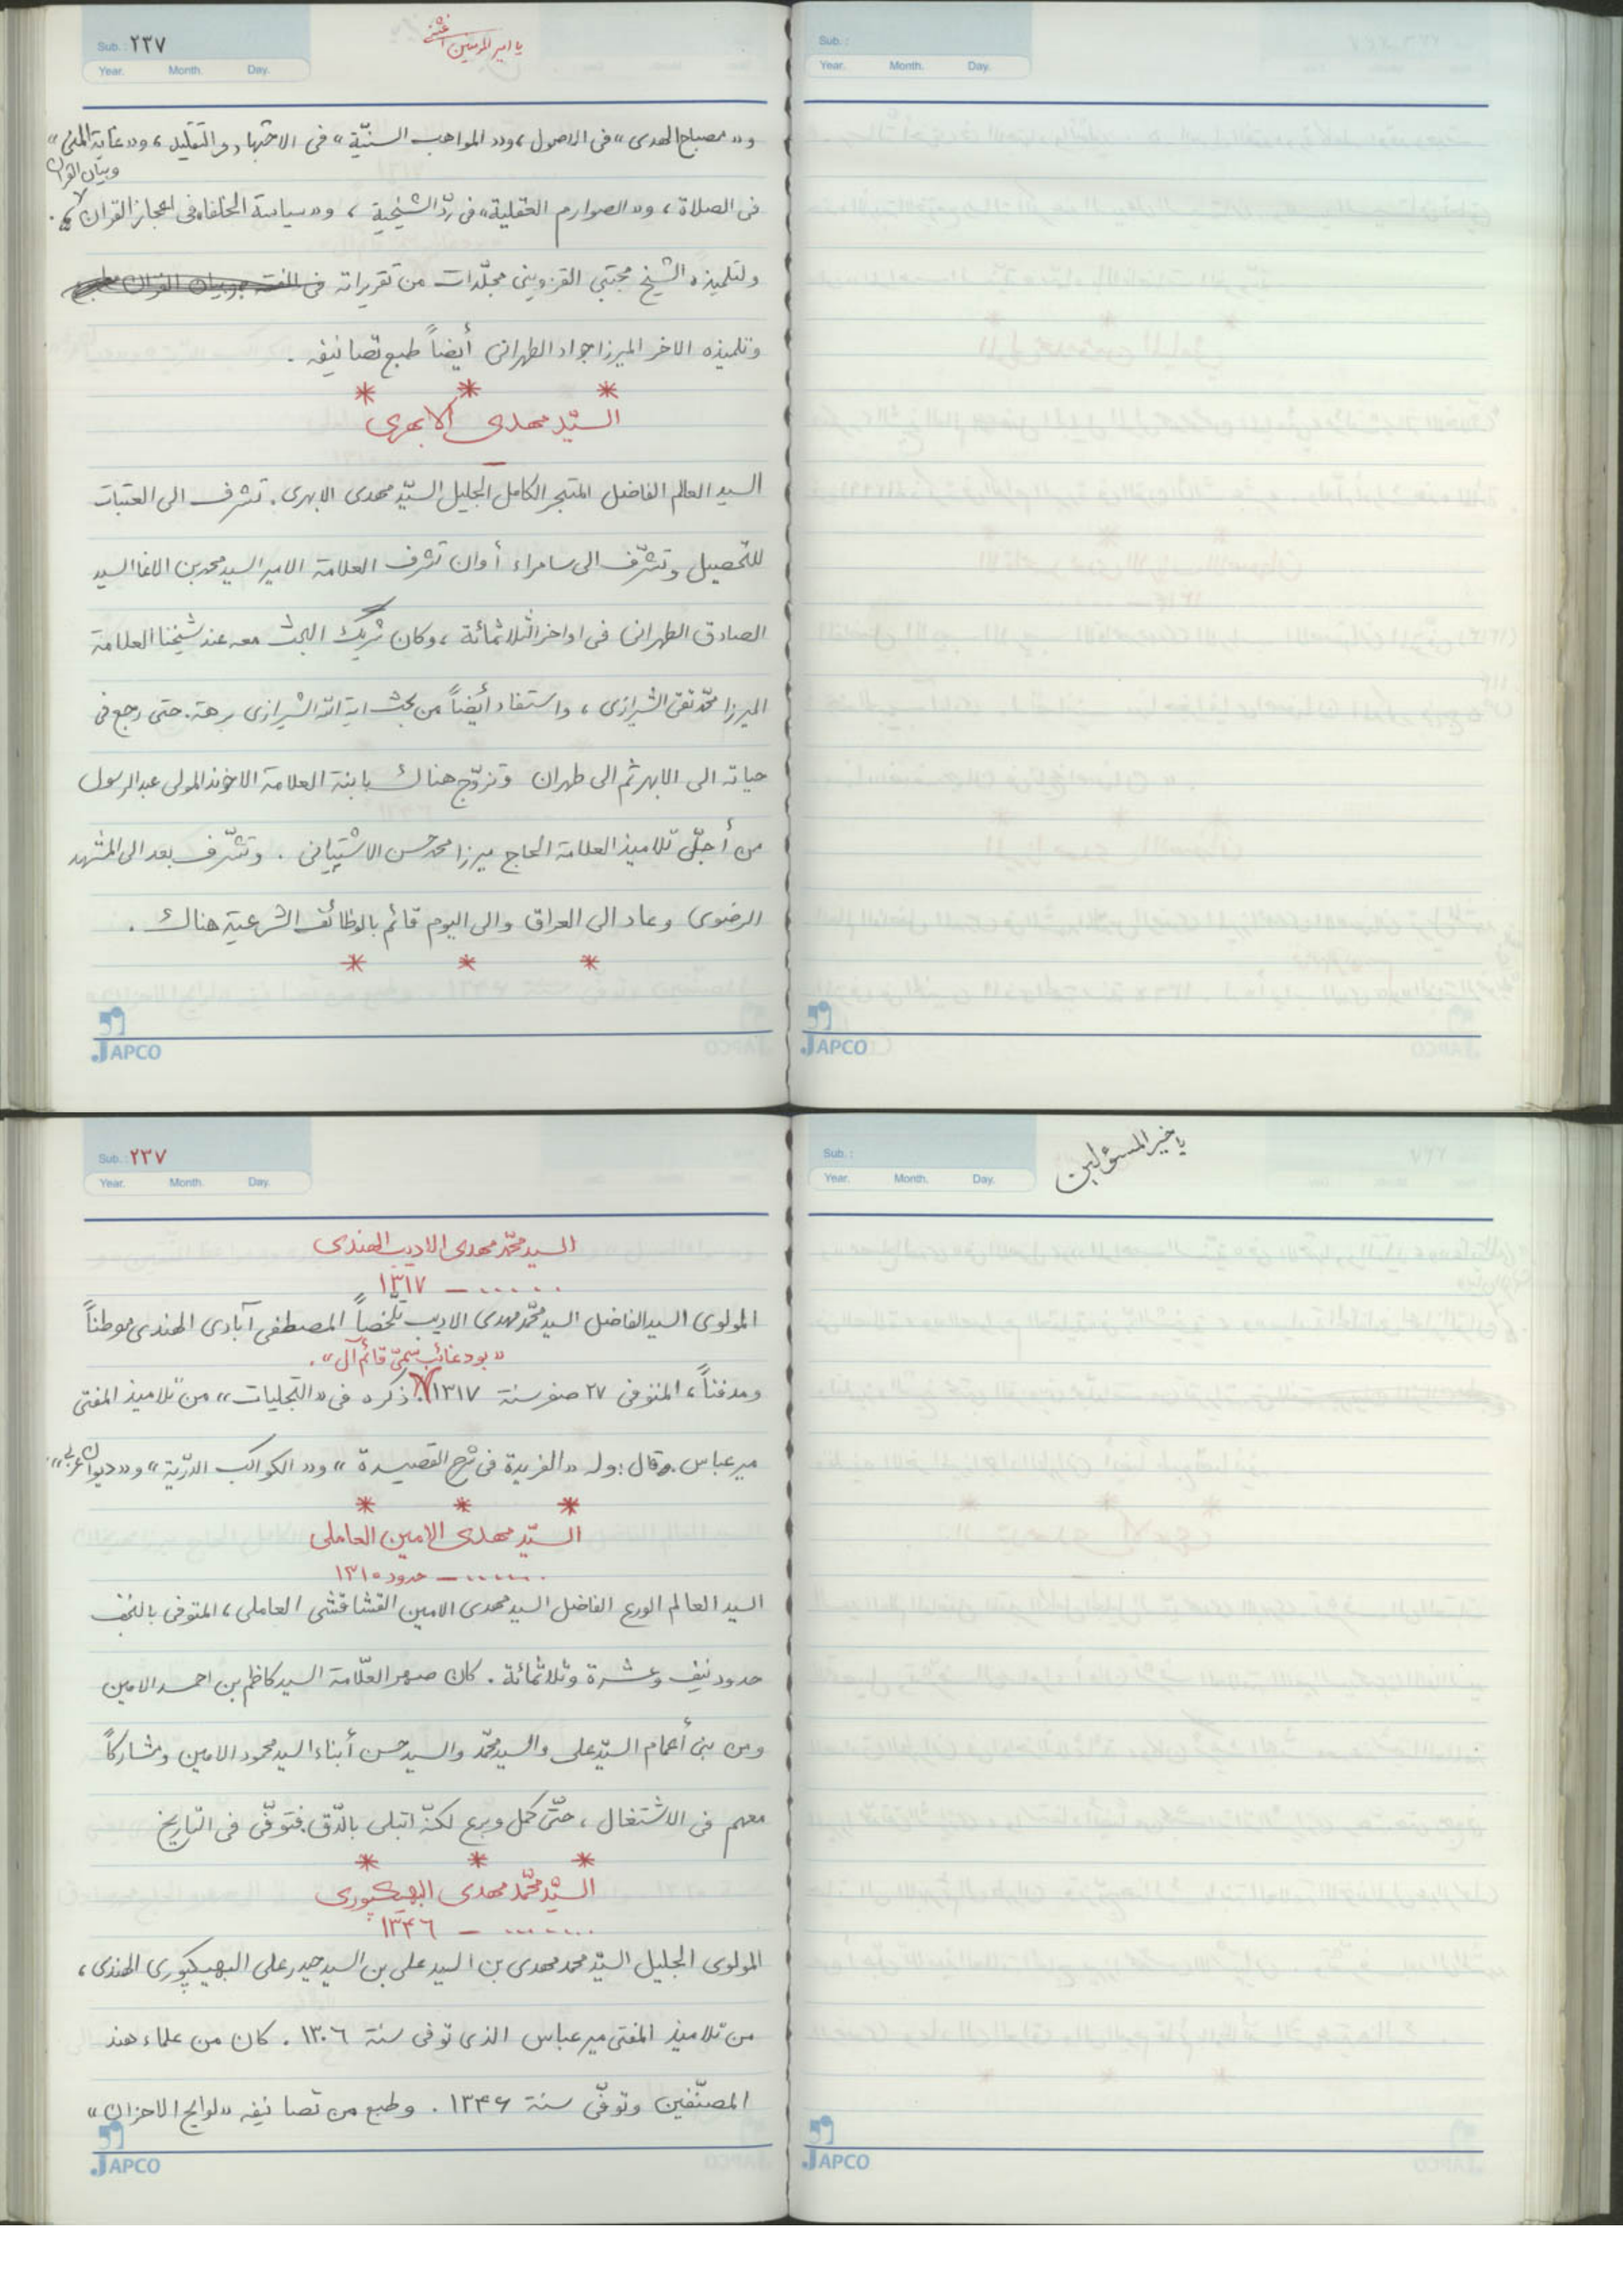 Sub. ٢٣٧
Year. Month. Day.
يا امير المؤمنين أغثني
و«مصباح الهدى» فى الاصول، و«المواهب السنيّة» فى الاجتهاد و التقليد، و«غاية المنى»
وبيان القران
فى الصلاة، و«الصوارم العقلية» فى ردّ الشيخية، و«سياسة الخلفاء فى اعجاز القران».
ولتلميذه الشيخ مجتبى القزوينى مجلّدات من تقريراته فى الفقه وبيان القران
وتلميذه الاخر الميرزا جواد الطهرانى أيضاً طبع تصانيفه .
* * *
السيّد مهدى الابهرى
السيد العالم الفاضل المتبحر الكامل الجليل السيّد مهدى الابهرى. تشرف الى العتبات
للتّحصيل وتشرّف الى سامراء أوان تشرف العلامة الامير السيد محمد بن الاغا السيد
الصادق الطهرانى فى اواخر الثلاثمائة، وكان شريك البحث معه عند شيخنا العلامة
الميرزا محمّد تقى الشيرازى، واستفاد أيضاً من بحث اية الله الشيرازى برهة. حتى رجع فى
حياته الى الابهر ثم الى طهران وتزوّج هناك بابنة العلامة الاخوند المولى عبد الرسول
من أجلّ تلاميذ العلامة الحاج ميرزا محمد حسن الاشتيانى . وتشّرف بعد الى المشهد
الرضوى وعاد الى العراق والى اليوم قائم بالوظائف الشرعية هناك .
* * *
JAPCO
Sub. :
Year. Month. Day.
JAPCO
Sub. ٢٣٧
Year. Month. Day.
السيد محمّد مهدى الاديب الهندى
...... – ١٣١٧
المولوى السيد الفاضل السيد محمّد مهدى الاديب تخلّصاً المصطفى آبادى الهندى موطناً
«بود غائب سمّى قائم آل» .
ومدفناً، المتوفى ٢٧ صفر سنة ١٣١٧. ذكره فى «التجليات» من تلاميذ المفتى
مير عباس. وقال: وله «الفريدة فى شرح القصيدة» و«الكواكب الدرّية» و«ديوان عربى».
* * *
السيّد مهدى الامين العاملى
....... – حدود ١٣١٠
السيد العالم الورع الفاضل السيد مهدى الامين القشاقشى العاملى، المتوفى بالنجف
حدود نيف وعشرة وثلاثمائة . كان صهر العلّامة السيد كاظم بن احمد الامين
ومن بنى أعمام السيّد على والسيد محمّد والسيد حسن أبناء السيد محمود الامين ومشاركاً
معهم فى الاشتغال، حتّى كمل وبرع لكنّه ابتلى بالدّق. فتوفّى فى التّاريخ
* * *
السيّد محمّد مهدى البهيكپورى
....... – ١٣۴٦
المولوى الجليل السيّد محمد مهدى بن السيد على بن السيد حيدر على البهيكپورى الهندى،
من تلاميذ المفتى مير عباس الذى توفى سنة ١٣٠٦ . كان من علماء هند
المصنّفين وتوفّى سنة ١٣۴۶ . وطبع من تصانيفه «لوايج الاحزان»
JAPCO
Sub. :
Year. Month. Day.
يا خير المسئولين
JAPCO